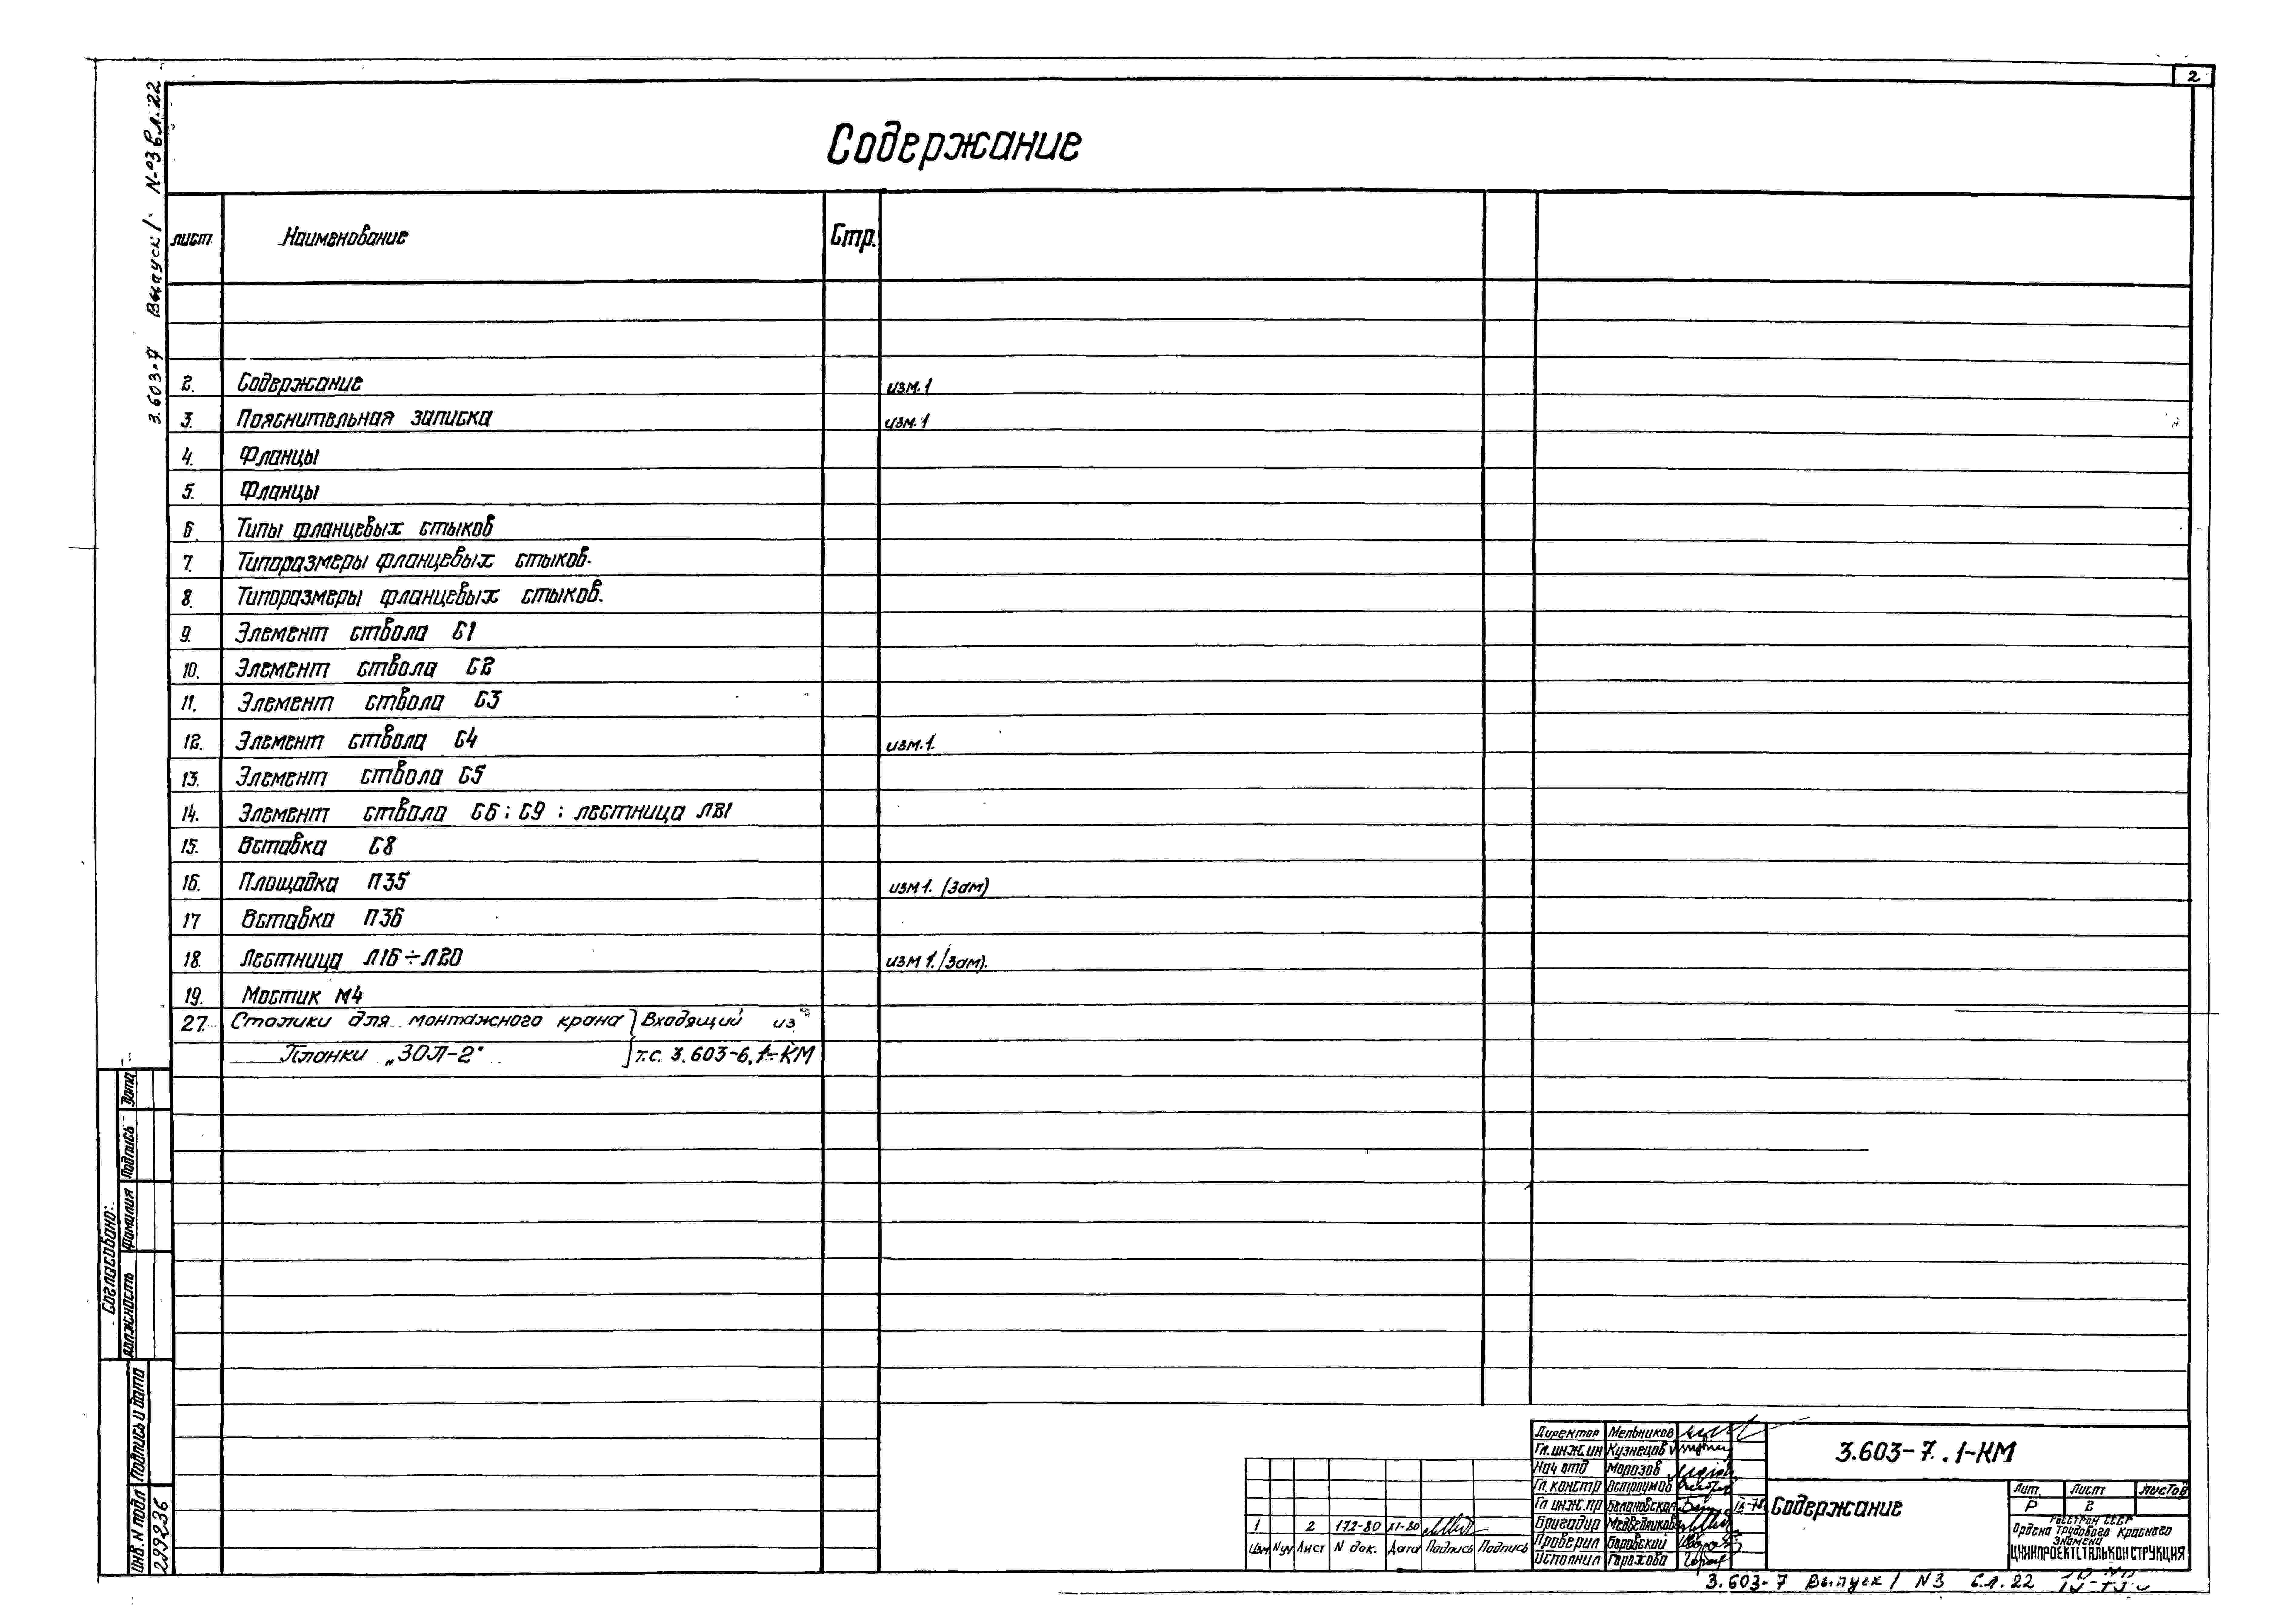 2
Содержание
лист. Наименование Стр.
2. Содержание изм.1
3. Пояснительная записка изм.1
4. Фланцы
5. Фланцы
6. Типы фланцевых стыков
7. Типоразмеры фланцевых стыков.
8. Типоразмеры фланцевых стыков.
9. Элемент ствола С1
10. Элемент ствола С2
11. Элемент ствола С3
12. Элемент ствола С4 изм.1.
13. Элемент ствола С5
14. Элемент ствола С6; С9; лестница Л21
15. Вставка С8
16. Площадка П35 изм 1. (Зам)
17 Вставка П36
18. Лестница Л16÷Л20 изм 1. (Зам).
19. Мостик М4
27. Столики для монтажного крана Входящий из
Планки „ЗОЛ-2" т.с. 3.603-6.1-КМ
3.603-7 Выпуск 1 N-03 6л.22
Согласовано:
Должность Фамилия Подпись Дата
Инв. N подл Подпись и дата
299236
Директор Мельников
Гл.инж.ин Кузнецов
Нач отд Морозов
Гл. констр Остроумов
Гл инж.пр Белановская IX-78
Бригадир Медведников
Проверил Боровский
Исполнил Горохова
1 2 172-80 XI-80
Изм Nуч Лист N док. Дата Подпись Подпись
3.603-7.1-КМ
Содержание
Лит. Лист Листов
Р 2
Госстрой СССР
Ордена Трудового Красного
Знамени
ЦНИИПРОЕКТСТАЛЬКОНСТРУКЦИЯ
3.603-7 Выпуск 1 N3 6.л. 22